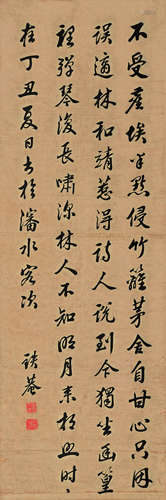 不受塵埃半點侵竹籬茅舍自甘心只因
誤適林和靖惹得詩人說到今獨坐幽篁
裡彈琴復長嘯深林人不知明月來相照時
在丁丑夏日書於瀋水客次
談菴